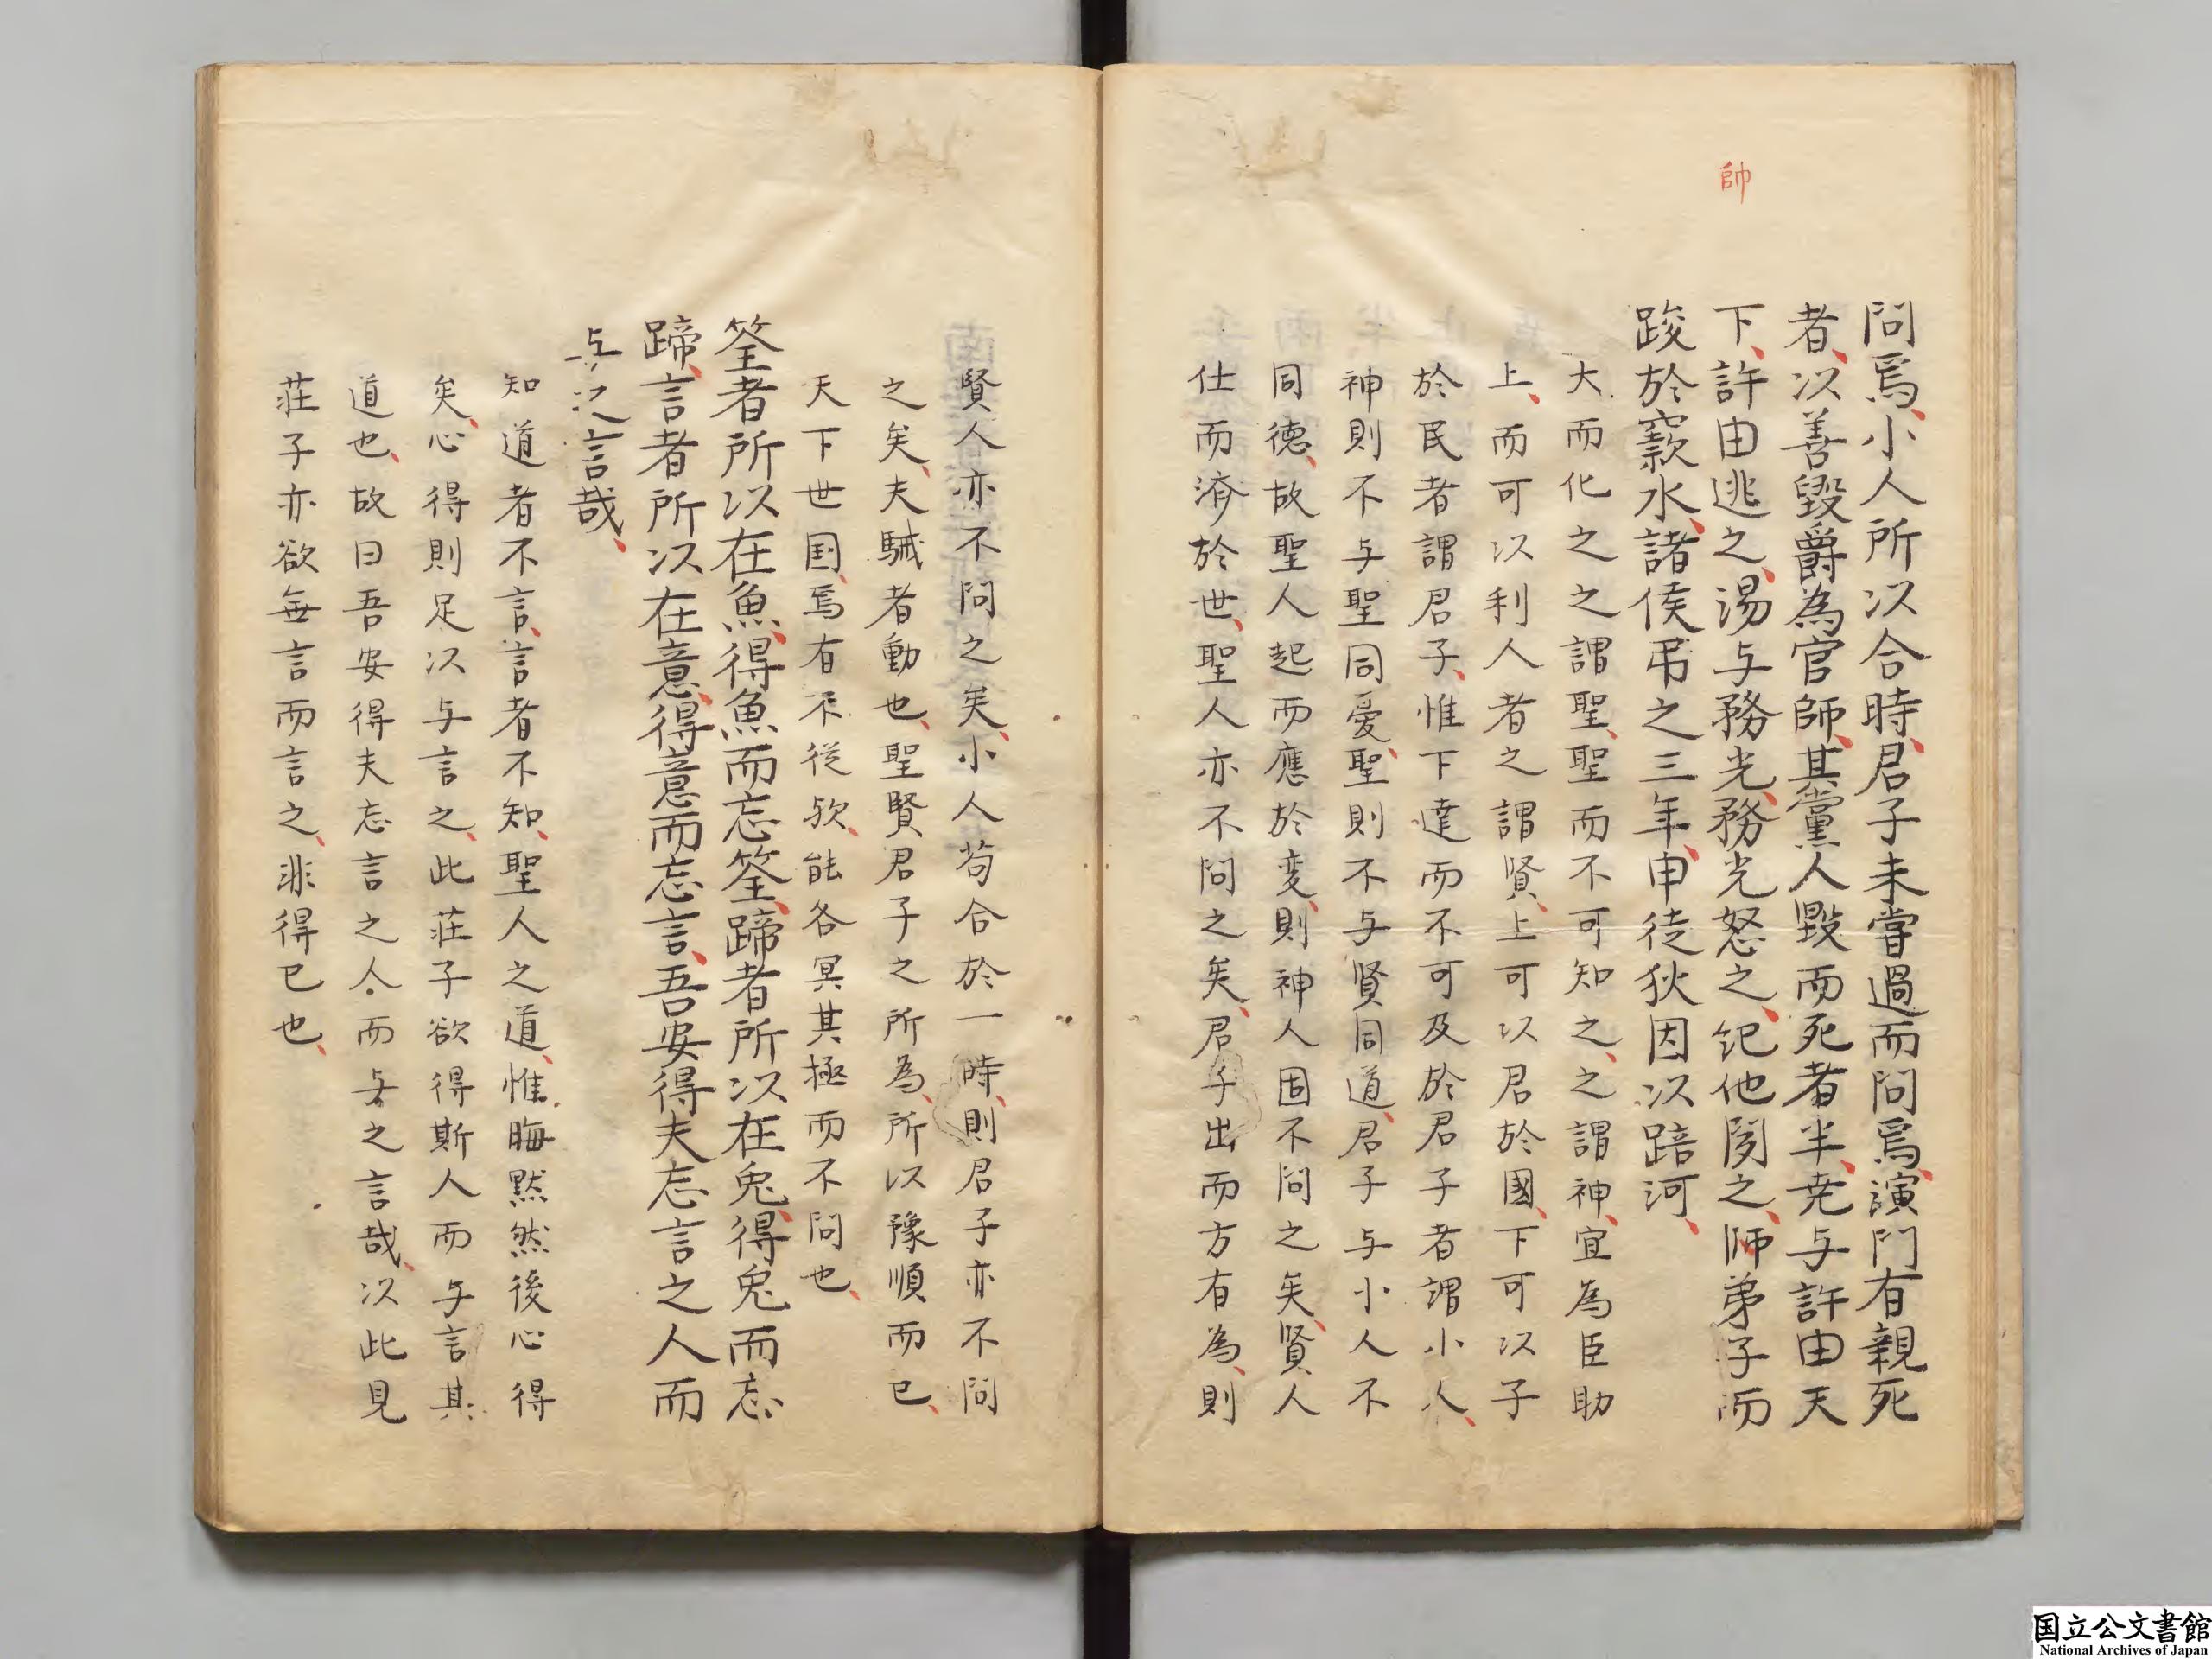 帥
問焉、小人所以合時、君子未嘗過而問焉、演門有親死
者、以善毀爵為官師、其黨人毀而死者半、尭与許由天
下、許由逃之、湯与務光、務光怒之、紀他聞之、師弟子而
踆於窾水、諸侯弔之三年、申徒狄因以踣河、
大而化之之謂聖、聖而不可知之、之謂神、宜為臣助
上、而可以利人者之謂賢、上可以君於國、下可以子
於民者謂君子、惟下達而不可及於君子者謂小人、
神則不与聖同憂、聖則不与賢同道、君子与小人不
同徳、故聖人起而應於変、則神人固不問之矣、賢人
仕而済於世、聖人亦不問之矣、君子出而方有為、則
賢人亦不問之矣、小人苟合於一時、則君子亦不問
之矣、夫駴者動也、聖賢君子之所為、所以豫順而已、
天下世国、焉有不從欤、能各冥其極而不問也、
筌者所以在魚、得魚而忘筌、蹄者所以在兎、得兎而忘
蹄、言者所以在意、得意而忘言、吾安得夫忘言之人而
与之言哉、
知道者不言、言者不知、聖人之道、惟晦黙然後心得
矣、心得則足以与言之、此荘子欲得斯人而与言其
道也、故曰吾安得夫忘言之人而与之言哉、以此見
荘子亦欲無言而言之、非得已也、
国立公文書館
National Archives of Japan